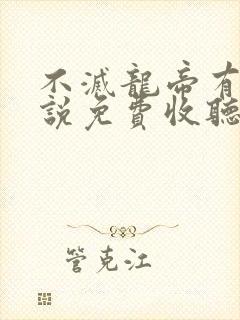 不滅龍帝有
說免費收聽
管克江